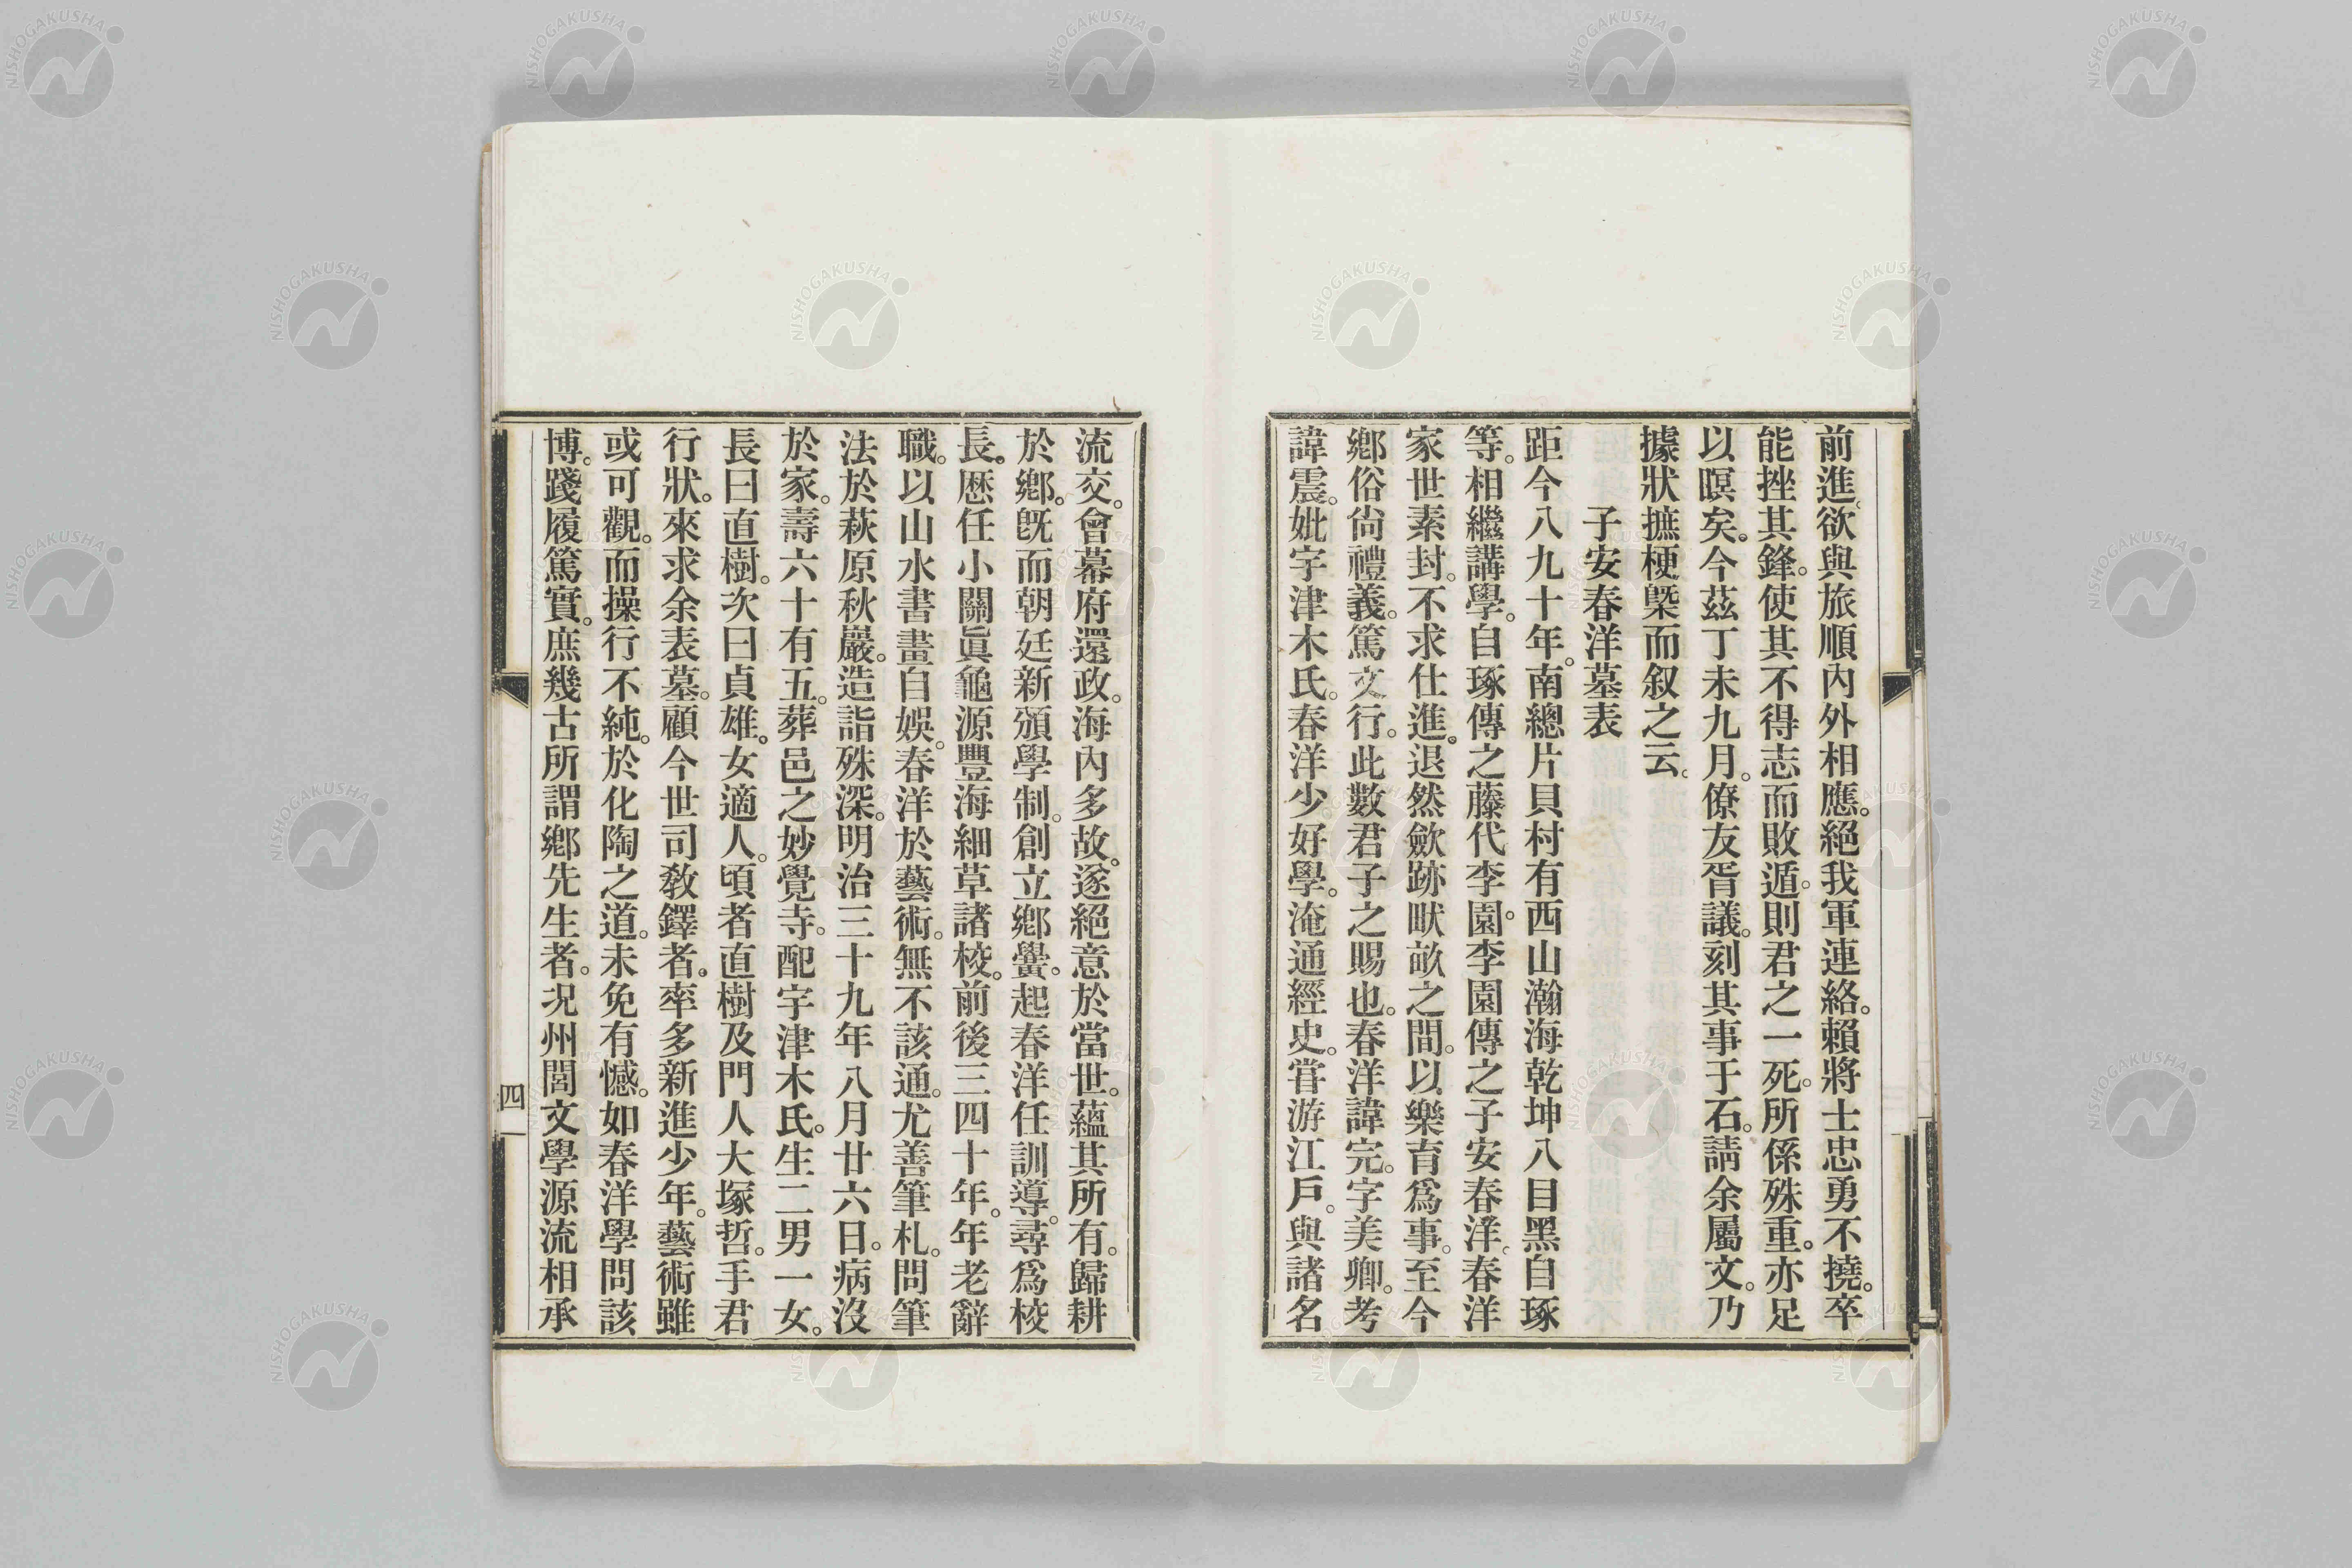 前進。欲與旅順內外相應。絕我軍連絡。賴將士忠勇不撓。卒
能挫其鋒。使其不得志而敗遁。則君之一死。所係殊重。亦足
以瞑矣。今茲丁未九月。僚友胥議。刻其事于石。請余屬文。乃
據狀摭梗槩而叙之云。
子安春洋墓表
距今八九十年。南總片貝村有西山瀚海乾坤八目黑白琢
等。相繼講學。白琢傳之藤代李園。李園傳之子安春洋。春洋
家世素封。不求仕進。退然歛跡畎畝之間。以樂育爲事。至今
鄕俗尙禮義。篤文行。此數君子之賜也。春洋諱完。字美卿。考
諱震。妣宇津木氏。春洋少好學。淹通經史。甞游江戶。與諸名
流交。會幕府還政。海內多故。遂絕意於當世。蘊其所有。歸耕
於鄕。旣而朝廷新頒學制。創立鄕黌。起春洋任訓導。尋爲校
長。歷任小關眞龜源豐海細草諸校。前後三四十年。年老辭
職。以山水書畫自娛。春洋於藝術。無不該通。尤善筆札。問筆
法於萩原秋巖。造詣殊深。明治三十九年八月廿六日。病沒
於家。壽六十有五。葬邑之妙覺寺。配宇津木氏。生二男一女。
長曰直樹。次曰貞雄。女適人。頃者直樹及門人大塚哲。手君
行狀。來求余表墓。顧今世司敎鐸者。率多新進少年。藝術雖
或可觀。而操行不純。於化陶之道。未免有憾。如春洋學問該
博。踐履篤實。庶幾古所謂鄕先生者。况州閭文學源流相承
四一
NISHOGAKUSHA